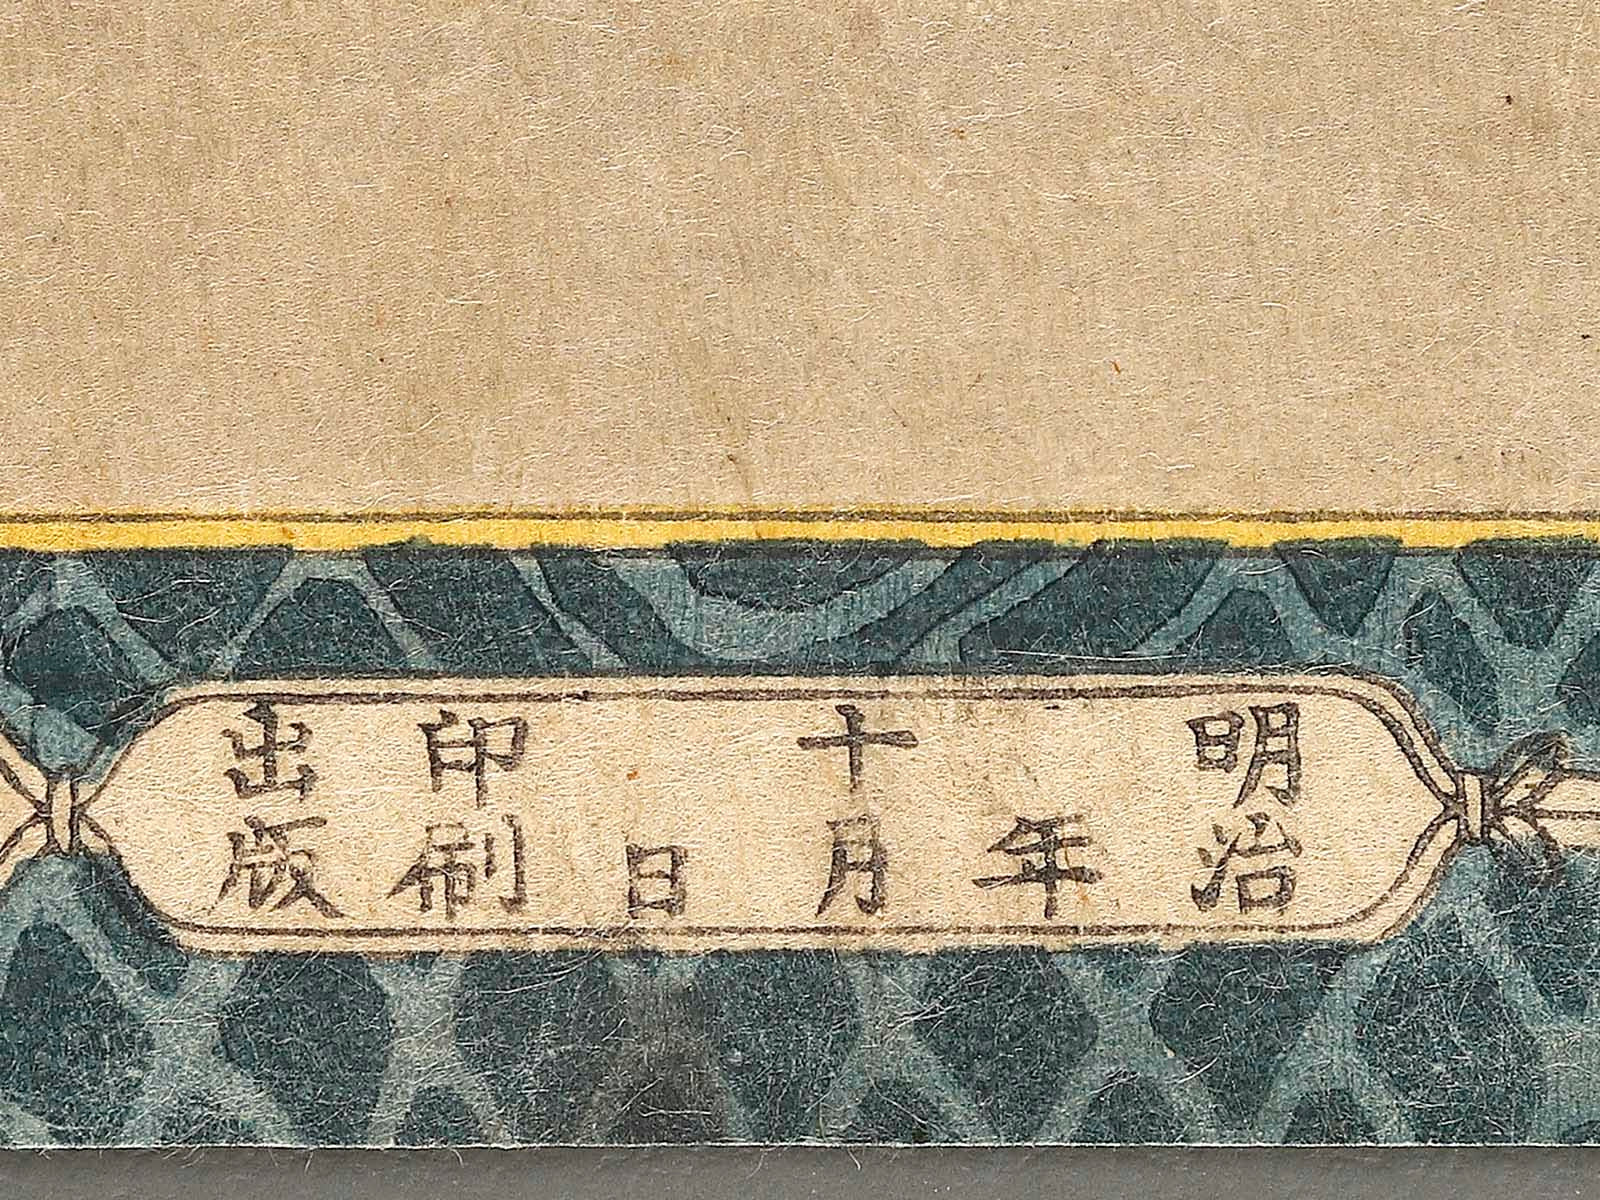 明治
年
十月
日
印刷
出版